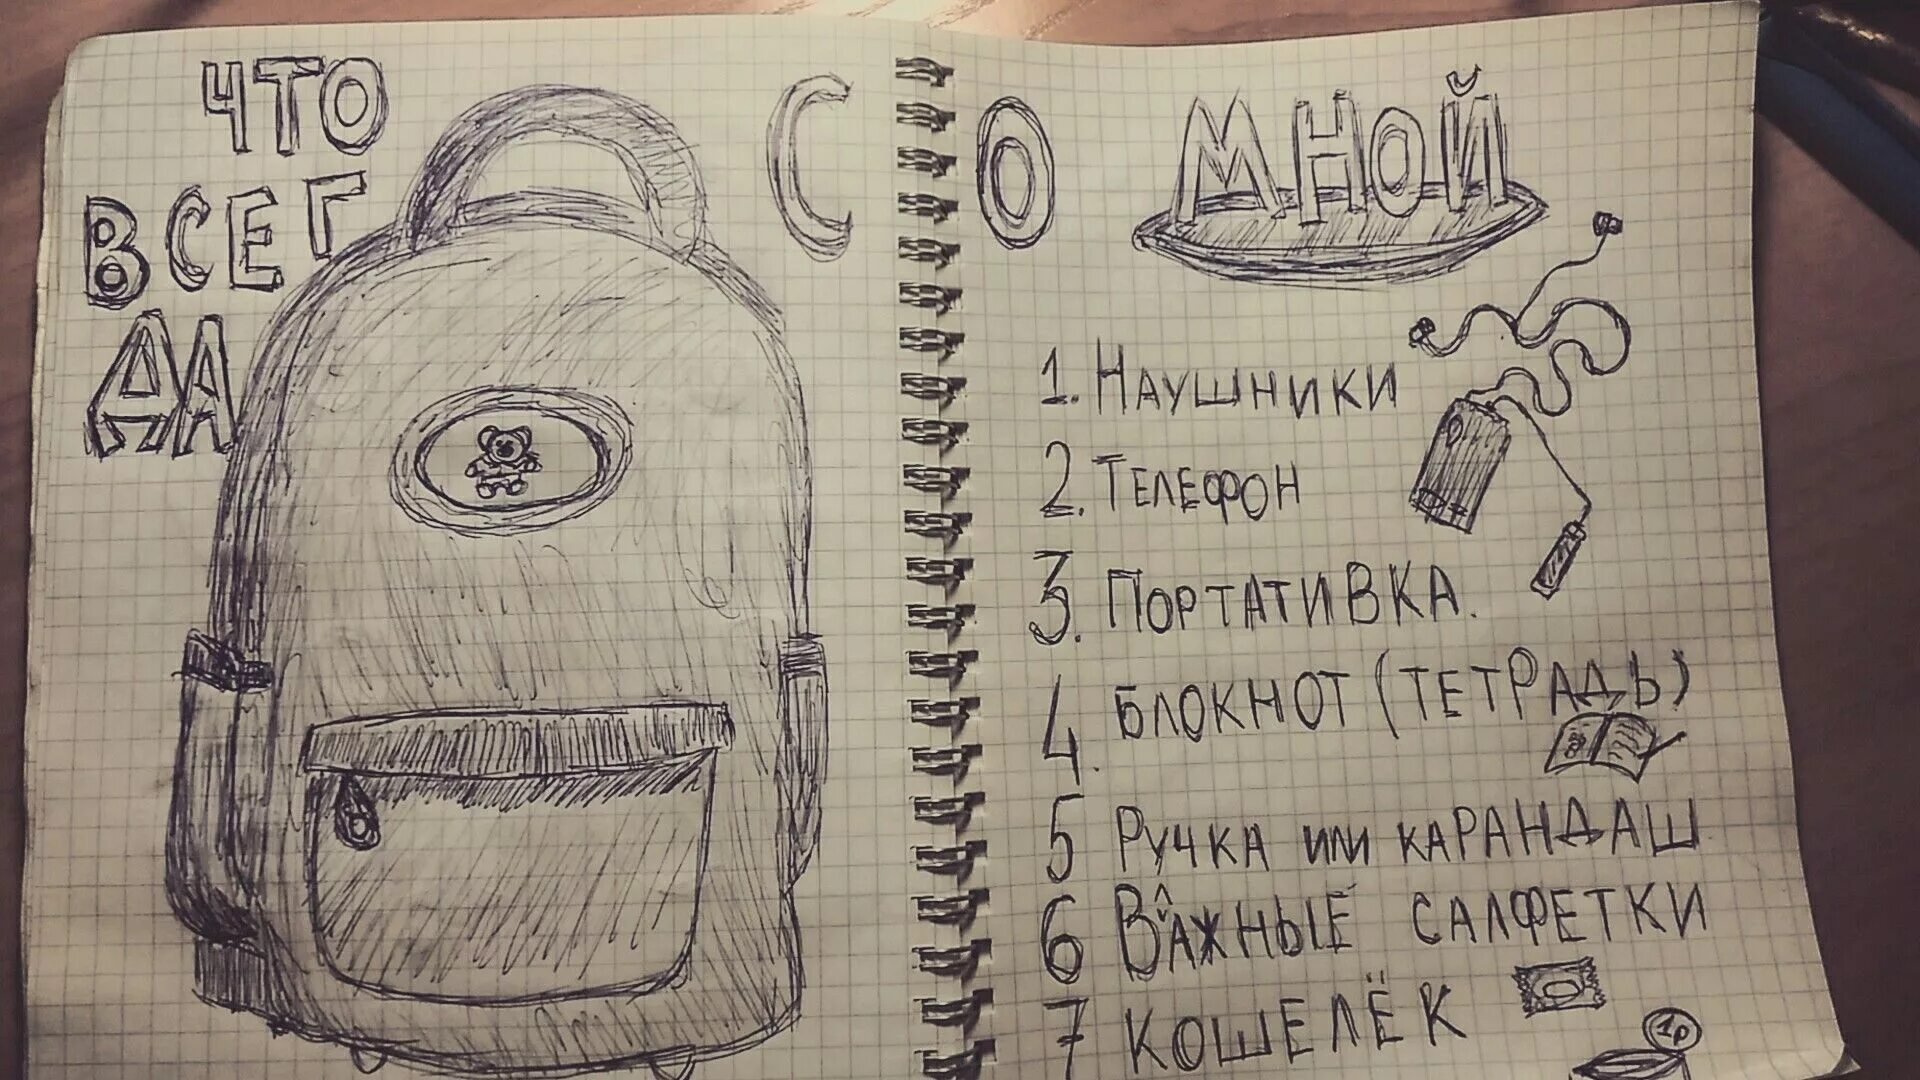 ЧТО
ВСЕГ
ДА
СО МНОЙ
1. НАУШНИКИ
2. ТЕЛЕФОН
3. ПОРТАТИВКА.
4. БЛОКНОТ (ТЕТРАДЬ)
5 РУЧКА ИЛИ КАРАНДАШ
6 ВАЖНЫЕ САЛФЕТКИ
7 КОШЕЛЁК
1р